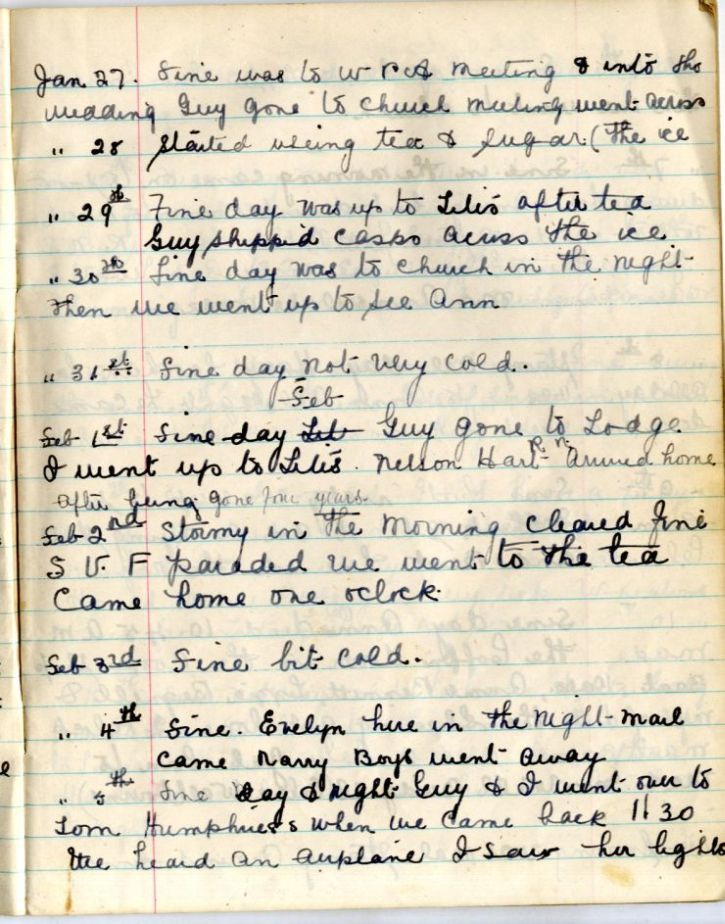 Jan 27. Fine was to W P A meeting & into the
wedding Guy gone to church meeting went across
" 28 Started using tea & sugar. (the ice
" 29th Fine day was up to Lili's after tea
Guy shipped casks across the ice
" 30th Fine day was to church in the night
then we went up to see Ann
" 31st Fine day not very cold.
Feb
Feb 1st Fine day Feb Guy gone to Lodge.
I went up to Lili's. Nelson Hart R.N. arrived home
after being gone four years
Feb 2nd Stormy in the morning cleared fine
S U. F paraded we went to the tea
Came home one oclock.
Feb 3rd Fine bit cold.
" 4th Fine. Evelyn here in the night mail
came Navy Boys went away
" 5th Fine day & night Guy & I went over to
Tom Humphries when we came back 11 30
We heard an airplane I saw her lights